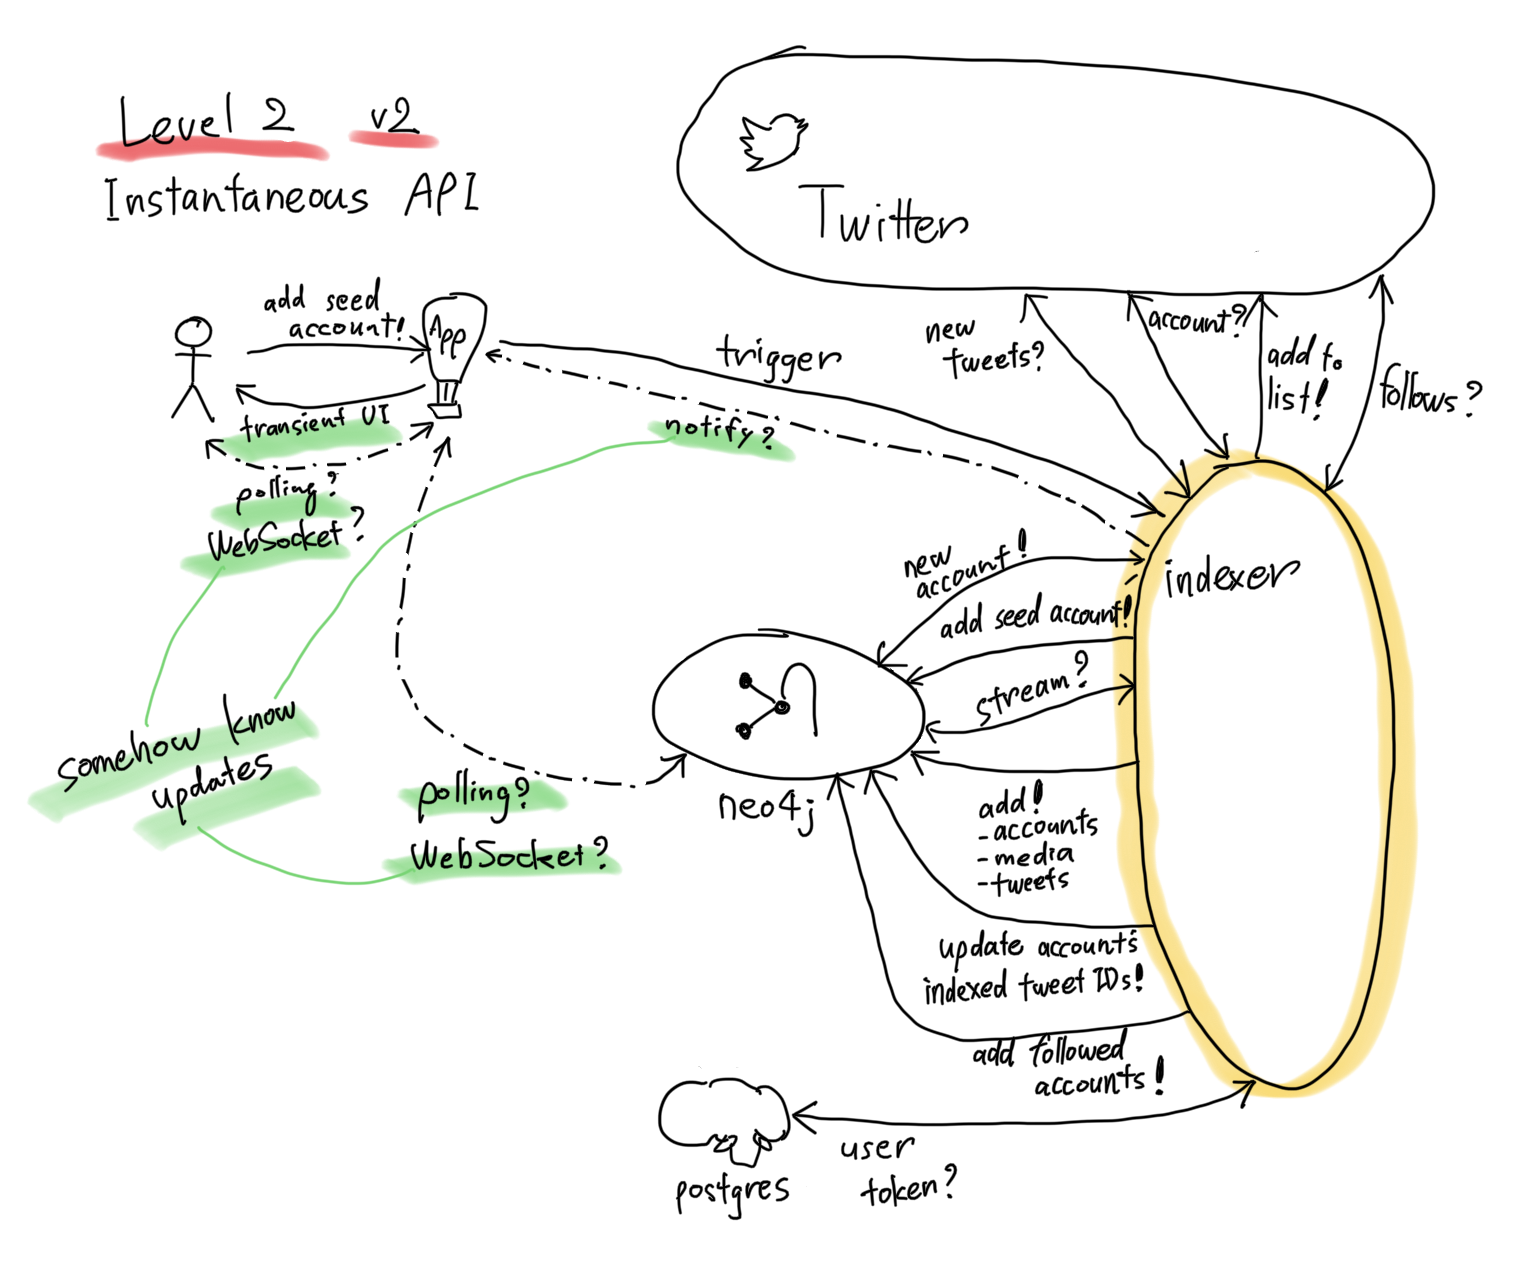 Level 2 v2
Instantaneous API
Twitter
add seed
account!
App
transient UI
polling?
WebSocket?
trigger
notify?
new
tweets?
account?
add to
list!
follows?
indexer
new
account!
add seed account!
stream?
neo4j
add!
- accounts
- media
- tweets
update accounts
indexed tweet IDs!
add followed
accounts!
somehow know
updates
polling?
WebSocket?
postgres
user
token?